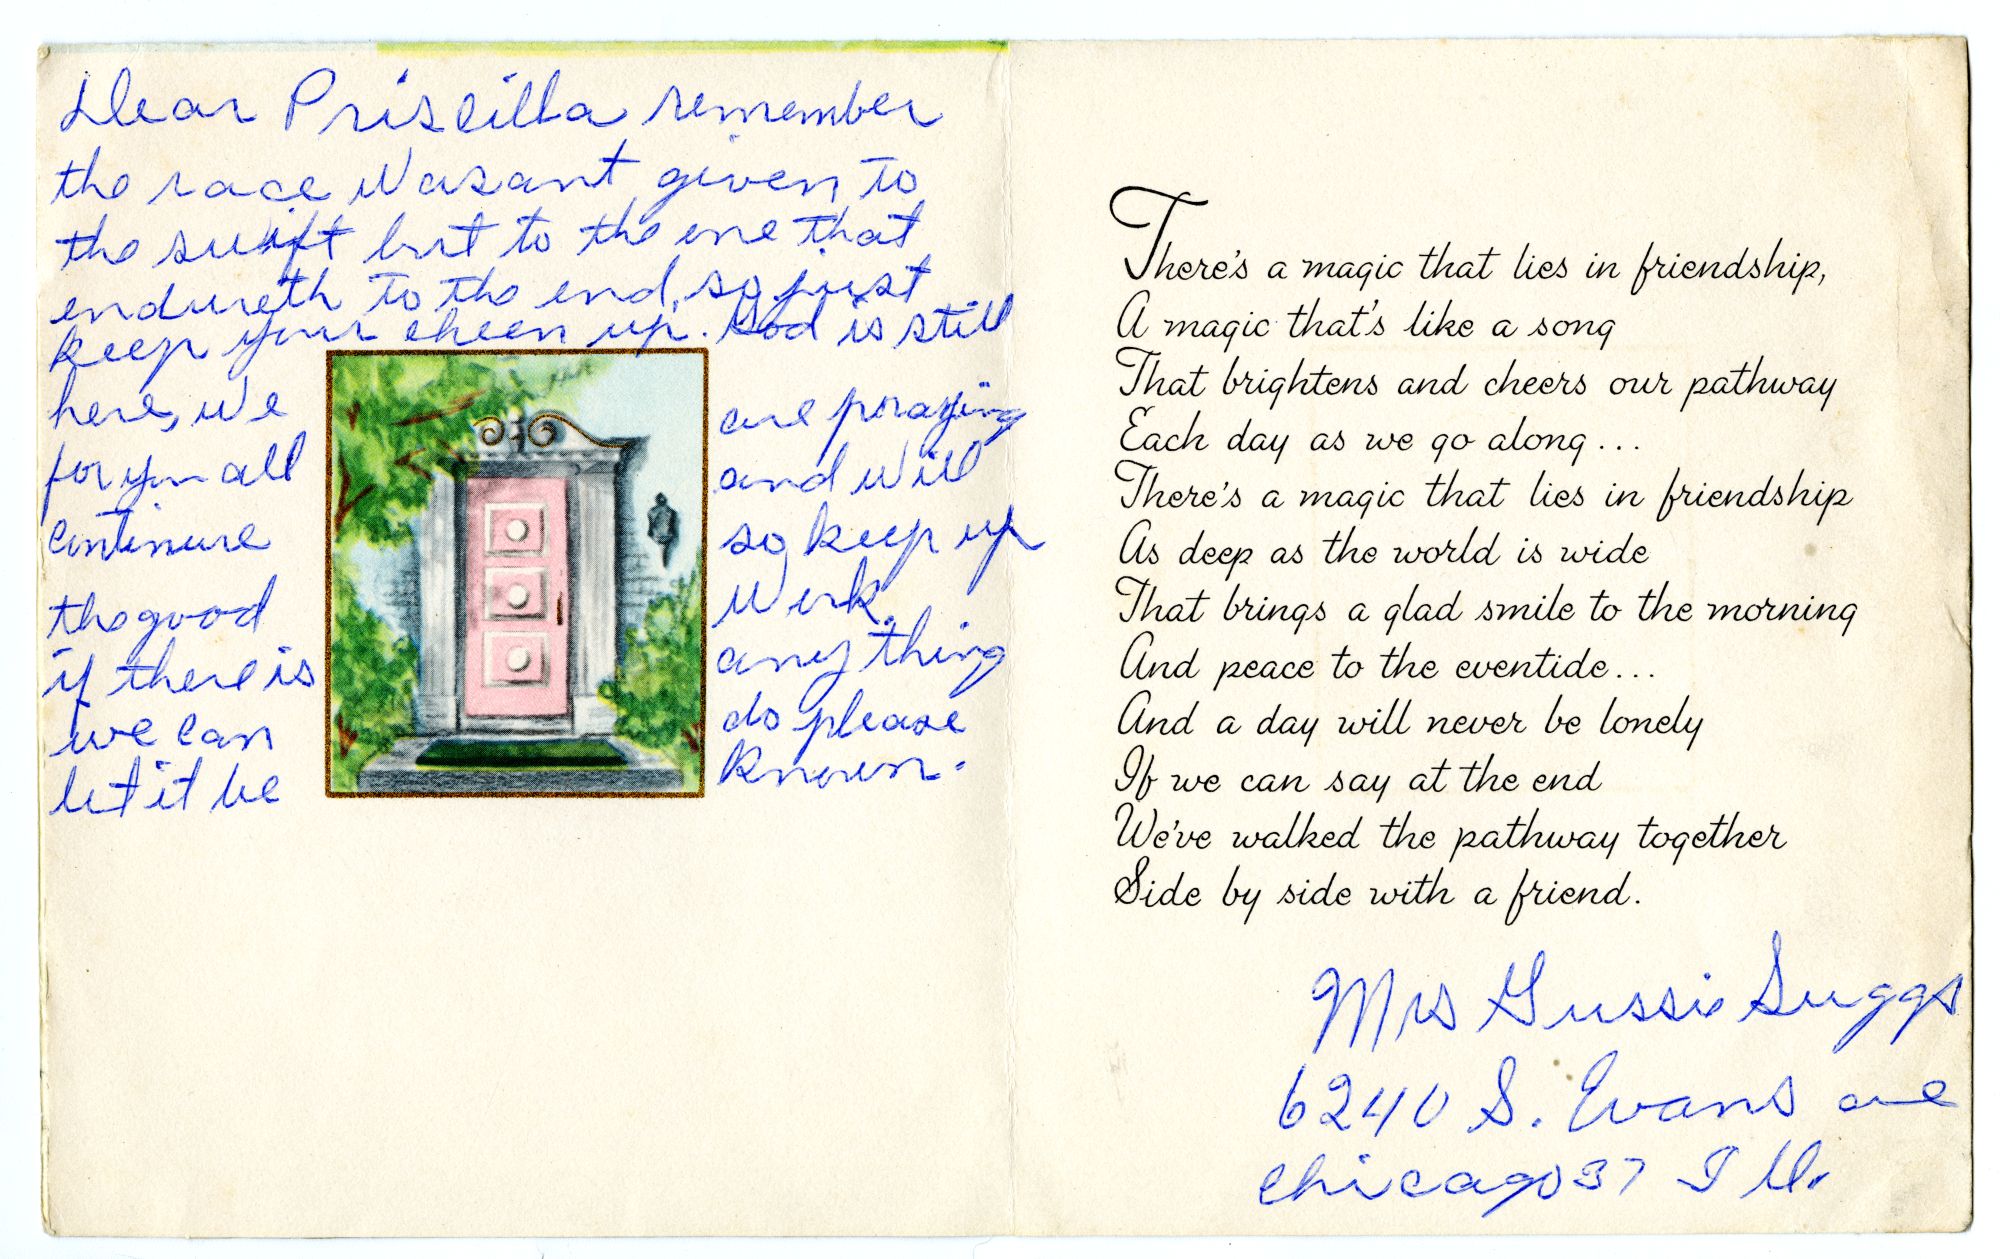 Dear Priscilla remember
the race wasant given to
the swift but to the one that
endureth to the end, so just
keep your cheen up. God is still
here, we are praying
for you all and will
continure so keep up
the good work.
if there is any thing
we can do please
let it be known.
There's a magic that lies in friendship,
A magic that's like a song
That brightens and cheers our pathway
Each day as we go along...
There's a magic that lies in friendship
As deep as the world is wide
That brings a glad smile to the morning
And peace to the eventide...
And a day will never be lonely
If we can say at the end
We've walked the pathway together
Side by side with a friend.
Mrs Gussie Suggs
6240 S. Evans ave
chicago 37 Ill.